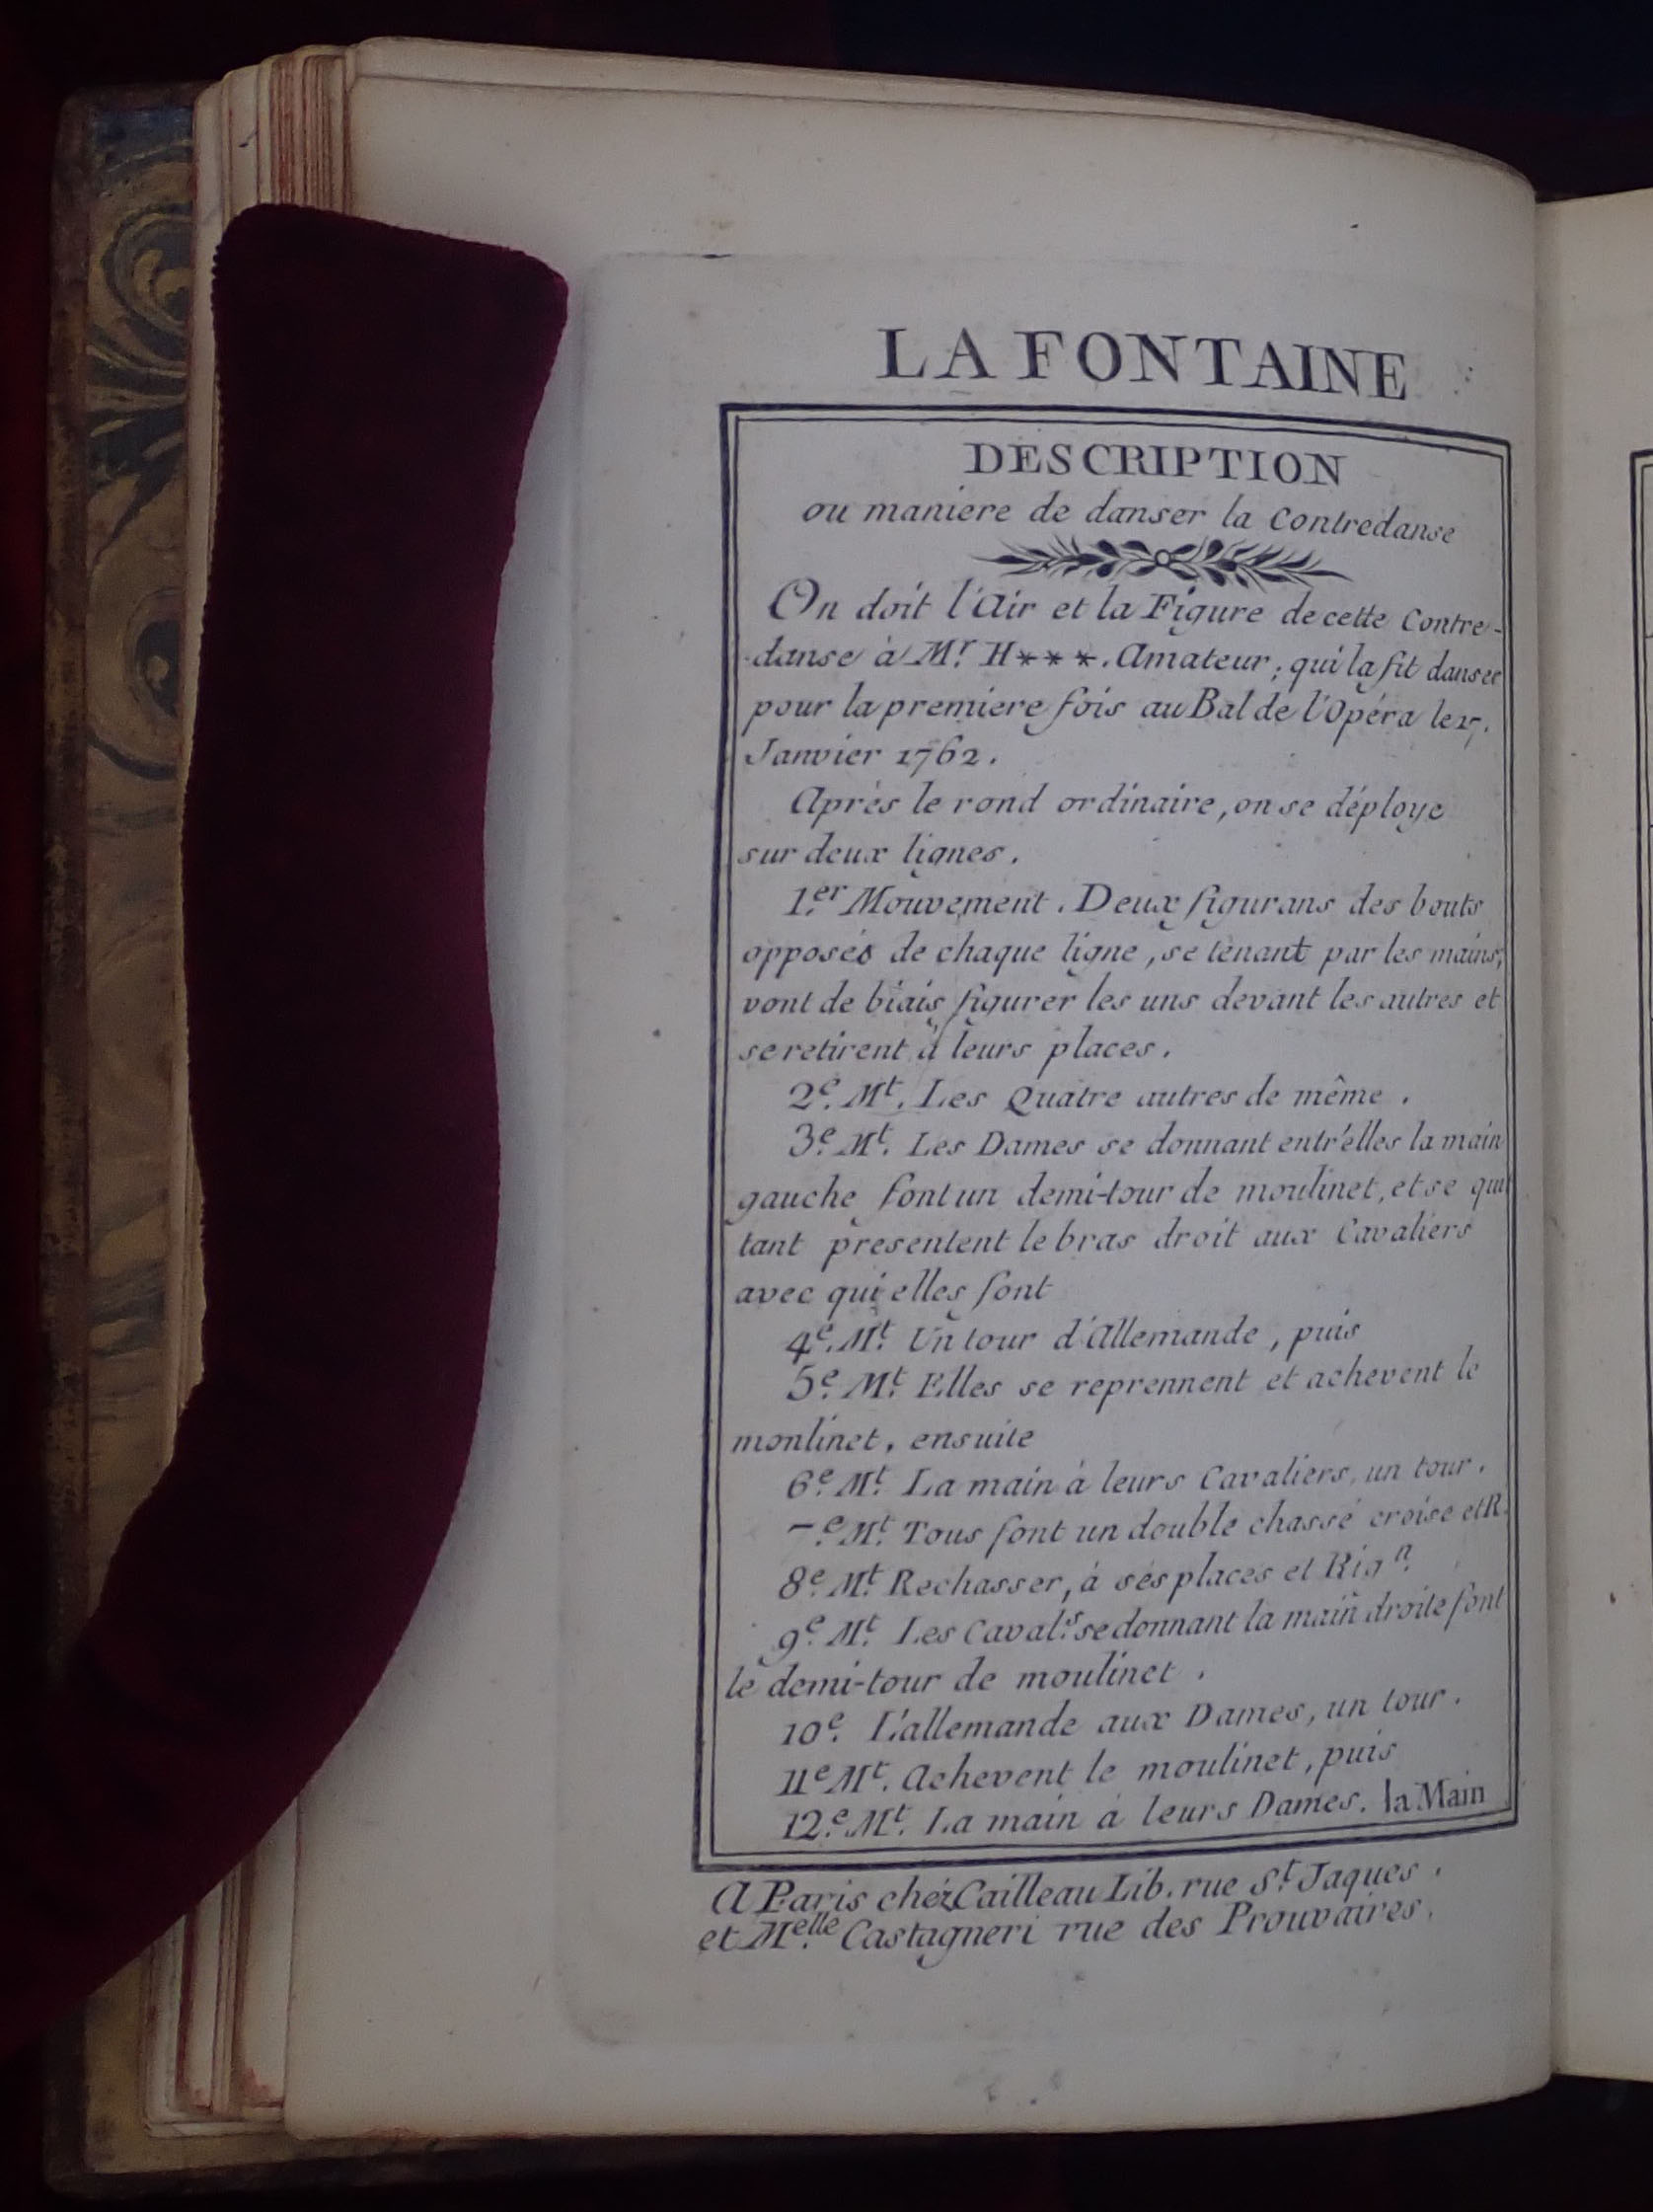 LA FONTAINE
DESCRIPTION
ou maniere de danser la Contredanse
On doit l'Air et la Figure de cette Contre-
danse à Mr H***. Amateur; qui la fit danser
pour la premiere fois au Bal de l'Opéra le 17.
Janvier 1762.
Après le rond ordinaire, on se déploye
sur deux lignes.
1.er Mouvement. Deux figurans des bouts
opposés de chaque ligne, se tenant par les mains,
vont de biais figurer les uns devant les autres et
se retirent à leurs places.
2.e Mt. Les Quatre autres de même.
3.e Mt. Les Dames se donnant entr'elles la main
gauche font un demi-tour de moulinet, et se quit
tant presentent le bras droit aux Cavaliers
avec qui elles font
4.e Mt. Un tour d'Allemande, puis
5.e Mt. Elles se reprennent et achevent le
monlinet, ensuite
6.e Mt. La main à leurs Cavaliers, un tour.
7.e Mt. Tous font un double chassé croisé et R.
8.e Mt. Rechasser, à ses places et Rig.n
9.e Mt. Les Caval.s se donnant la main droite font
le demi-tour de moulinet.
10.e L'allemande aux Dames, un tour.
11e Mt. Achevent le moulinet, puis
12.e Mt. La main à leurs Dames. la Main
A Paris chéz Cailleau Lib. rue St. Jaques.
et Melle. Castagneri rue des Prouvaires.